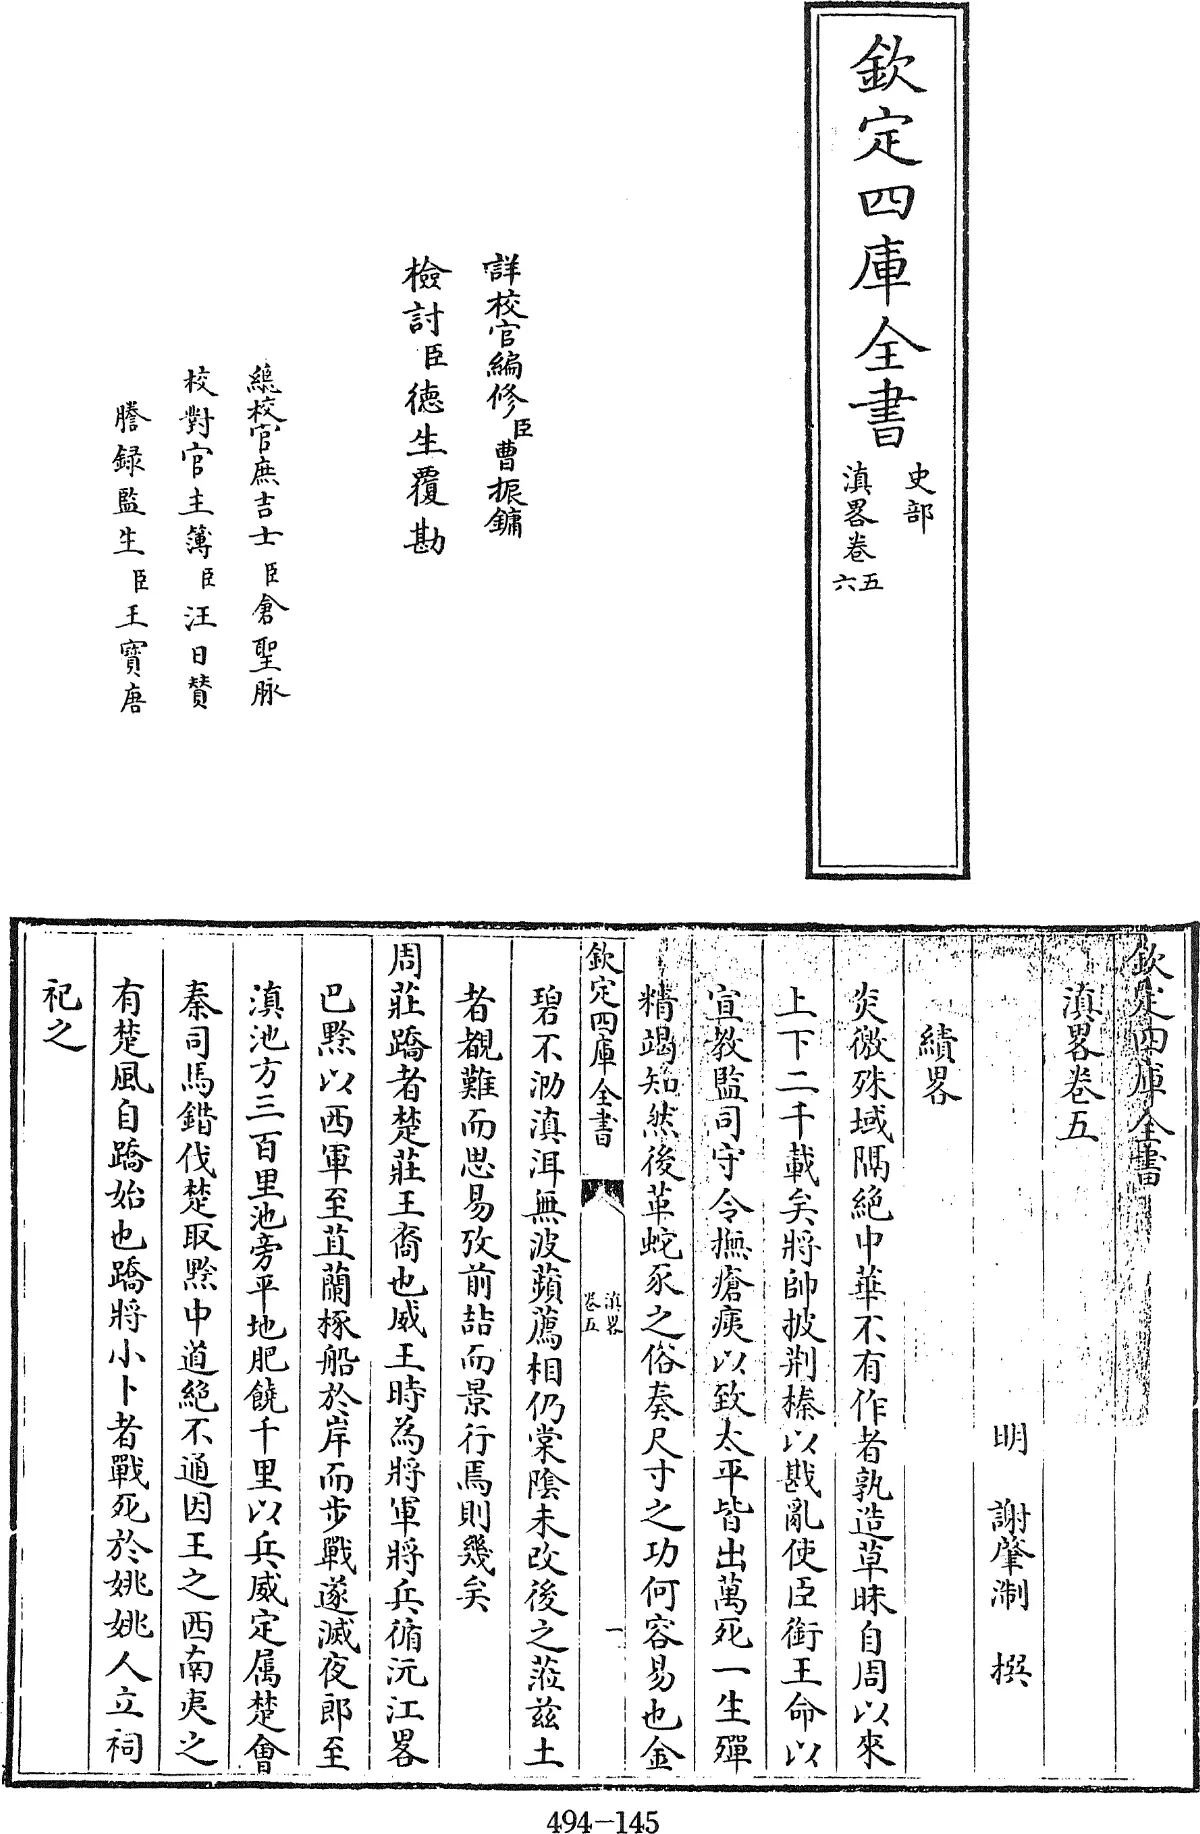 欽定四庫全書
史部
滇畧卷五
六
詳校官編修臣曹振鏞
檢討臣德生覆勘
總校官庶吉士臣倉聖脉
校對官主簿臣汪日贊
謄録監生臣王寶唐
欽定四庫全書
滇畧卷五
明 謝肇淛 撰
績畧
炎徼殊域隅絶中華不有作者孰造草昧自周以來
上下二千載矣將帥披荆榛以戡亂使臣銜王命以
宣教監司守令撫瘡痍以致太平皆出萬死一生殫
精竭知然後革蛇豕之俗奏尺寸之功何容易也金
欽定四庫全書
滇畧
卷五
一
碧不泐滇洱無波蘋薦相仍棠陰未改後之蒞兹土
者覩難而思易攷前喆而景行焉則幾矣
周莊蹻者楚莊王裔也威王時為將軍將兵循沅江畧
巴黔以西軍至苴蘭椓船於岸而步戰遂滅夜郎至
滇池方三百里池旁平地肥饒千里以兵威定属楚會
秦司馬錯伐楚取黔中道絶不通因王之西南夷之
有楚風自蹻始也蹻將小卜者戰死於姚姚人立祠
祀之
494-145